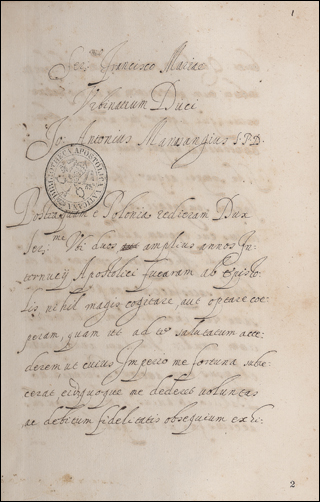 1
Ser.mo Francisco Mariae
Vrbinatium Duci
Jo: Antonius Marsangius S.P.D.
Postquam e Polonia redieram Dux
Ser.me Vbi duos amplius annos In-
ternuntij Apostolici fueram ab Episto-
lis nihil magis cogitare, aut optare coe-
peram, quam ut ad te salutatum acce-
derem ut cuius Imperio me fortuna subie-
cerat eidem quoque me dederet voluntas
ac debitum fidelitatis obsequium exhi-
2